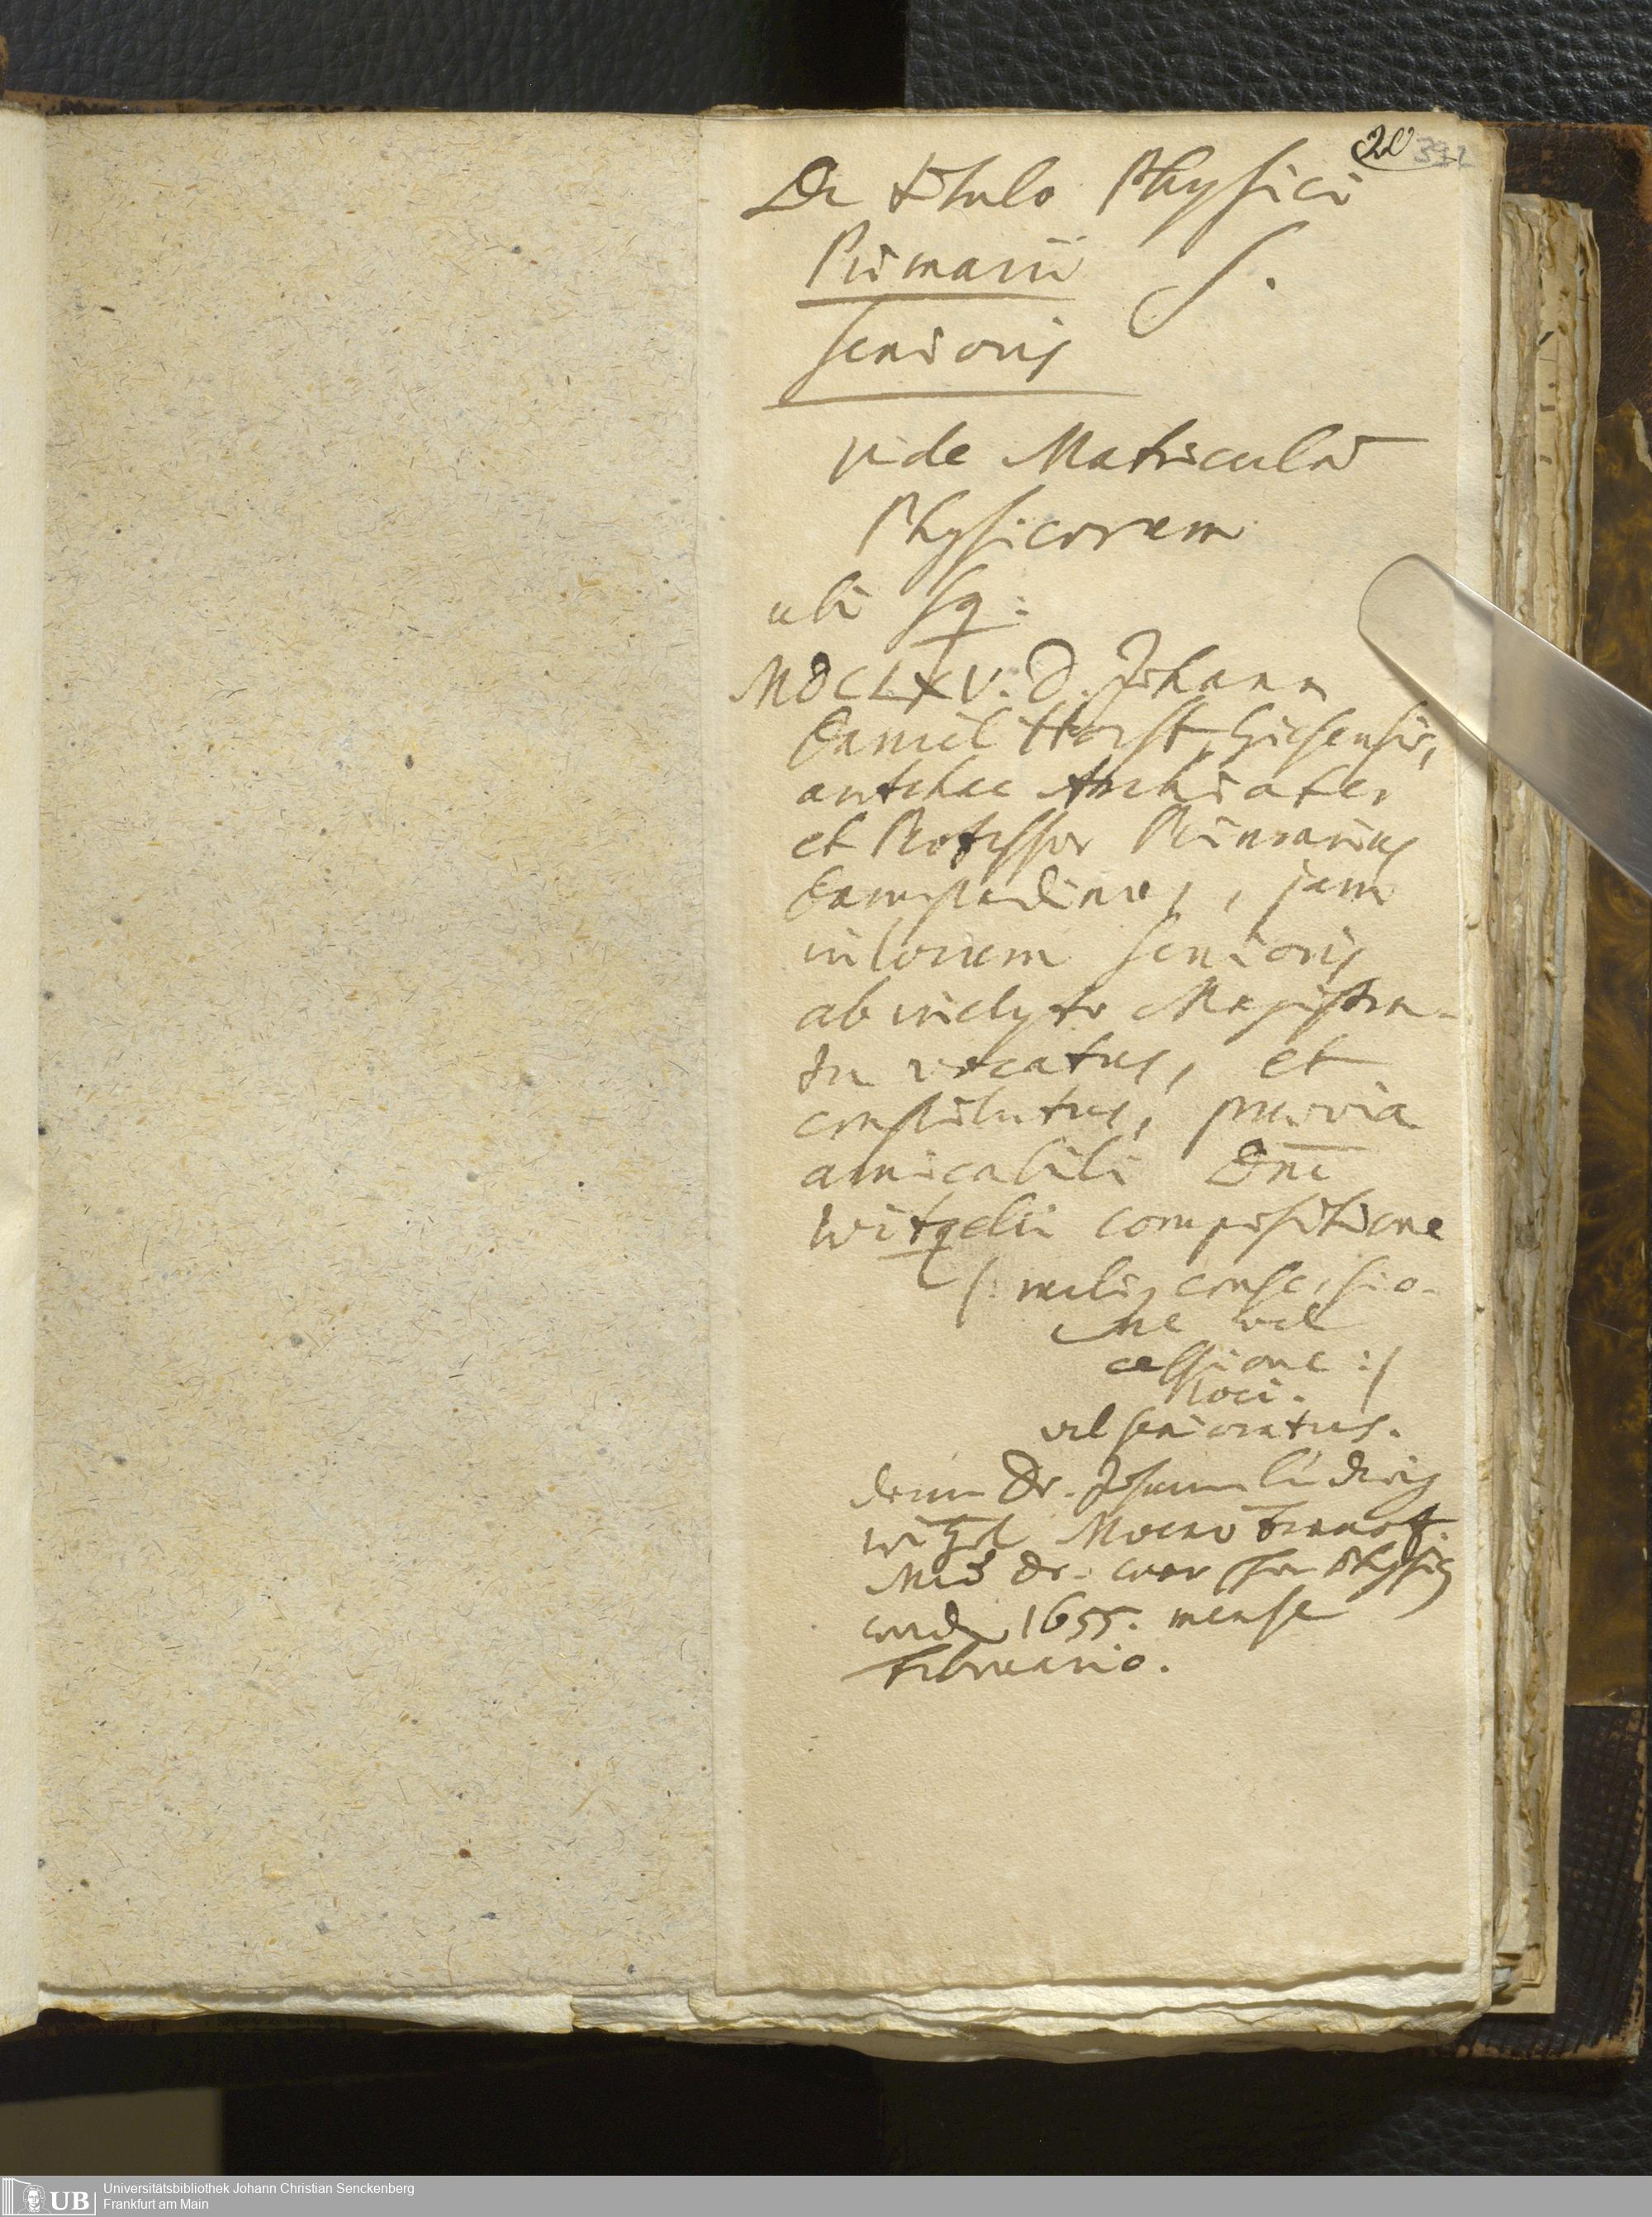 20 392
De titulo Physici
Primarii S.
Senioris
vide Matriculam
Physicorum
ubi sq:
MDCLXV. D. Johann
Daniel Horst, Giesensis,
antehac Archiater
et Professor Primarius
Darmstadinus, jam
in locum senioris
ab inclyto Magistra-
tu vocatus, et
constitutus, praevia
amicabili Dni
Witzelii compositione
(: melius concessio-
ne vel
cessione :)
loci.
vel senioratus.
denn Dr. Johann Ludwig
Witzel Moeno Francof.
Med Dr. war Physicus
word 1655. mense
Februario.
UB Universitätsbibliothek Johann Christian Senckenberg
Frankfurt am Main